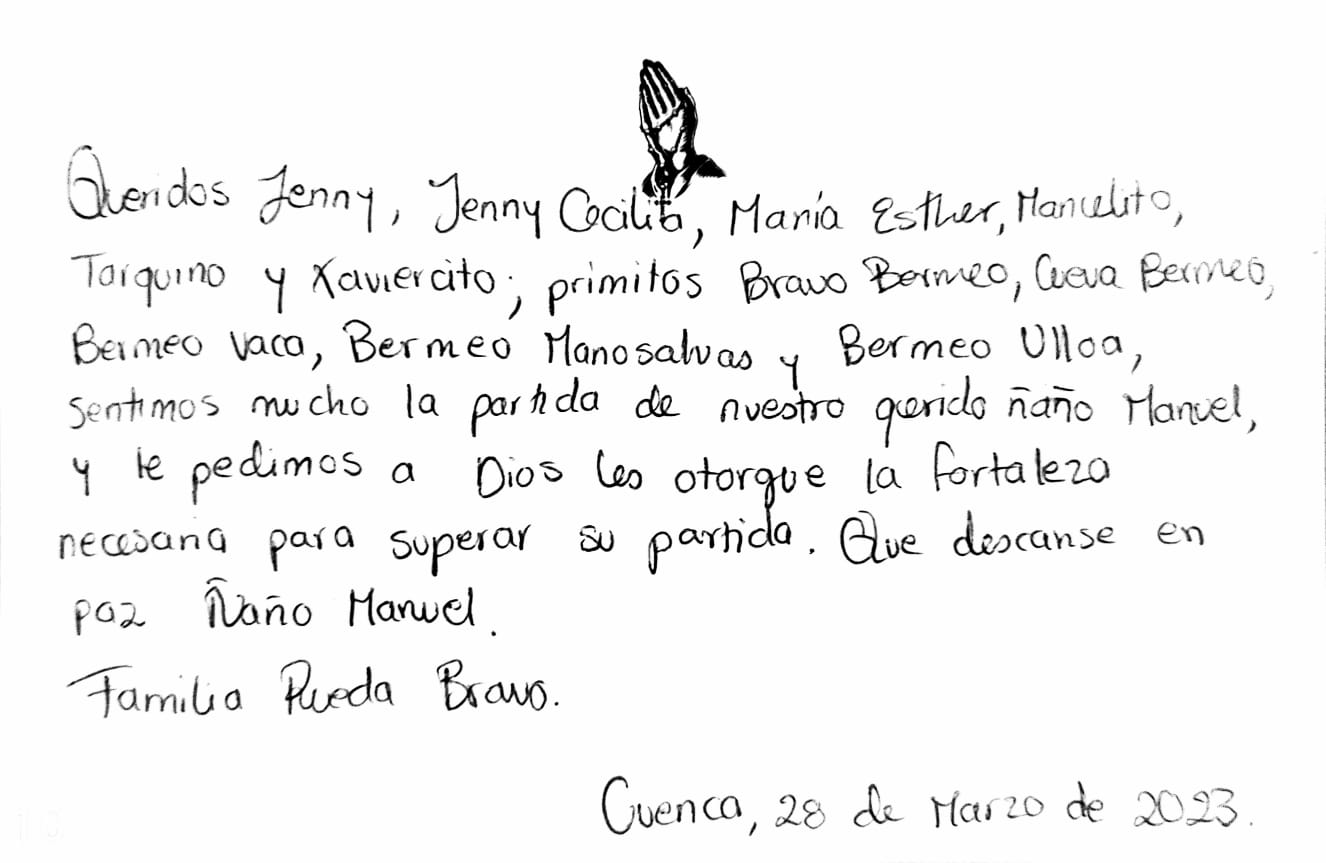 Queridos Jenny, Jenny Cecilita, María Esther, Manuelito,
Tarquino y Xaviercito; primitos Bravo Bermeo, Cueva Bermeo,
Bermeo Vaca, Bermeo Manosalvas y Bermeo Ulloa,
sentimos mucho la partida de nuestro querido ñaño Manuel,
y le pedimos a Dios les otorgue la fortaleza
necesaria para superar su partida. Que descanse en
paz Ñaño Manuel.
Familia Rueda Bravo.
Cuenca, 28 de Marzo de 2023.